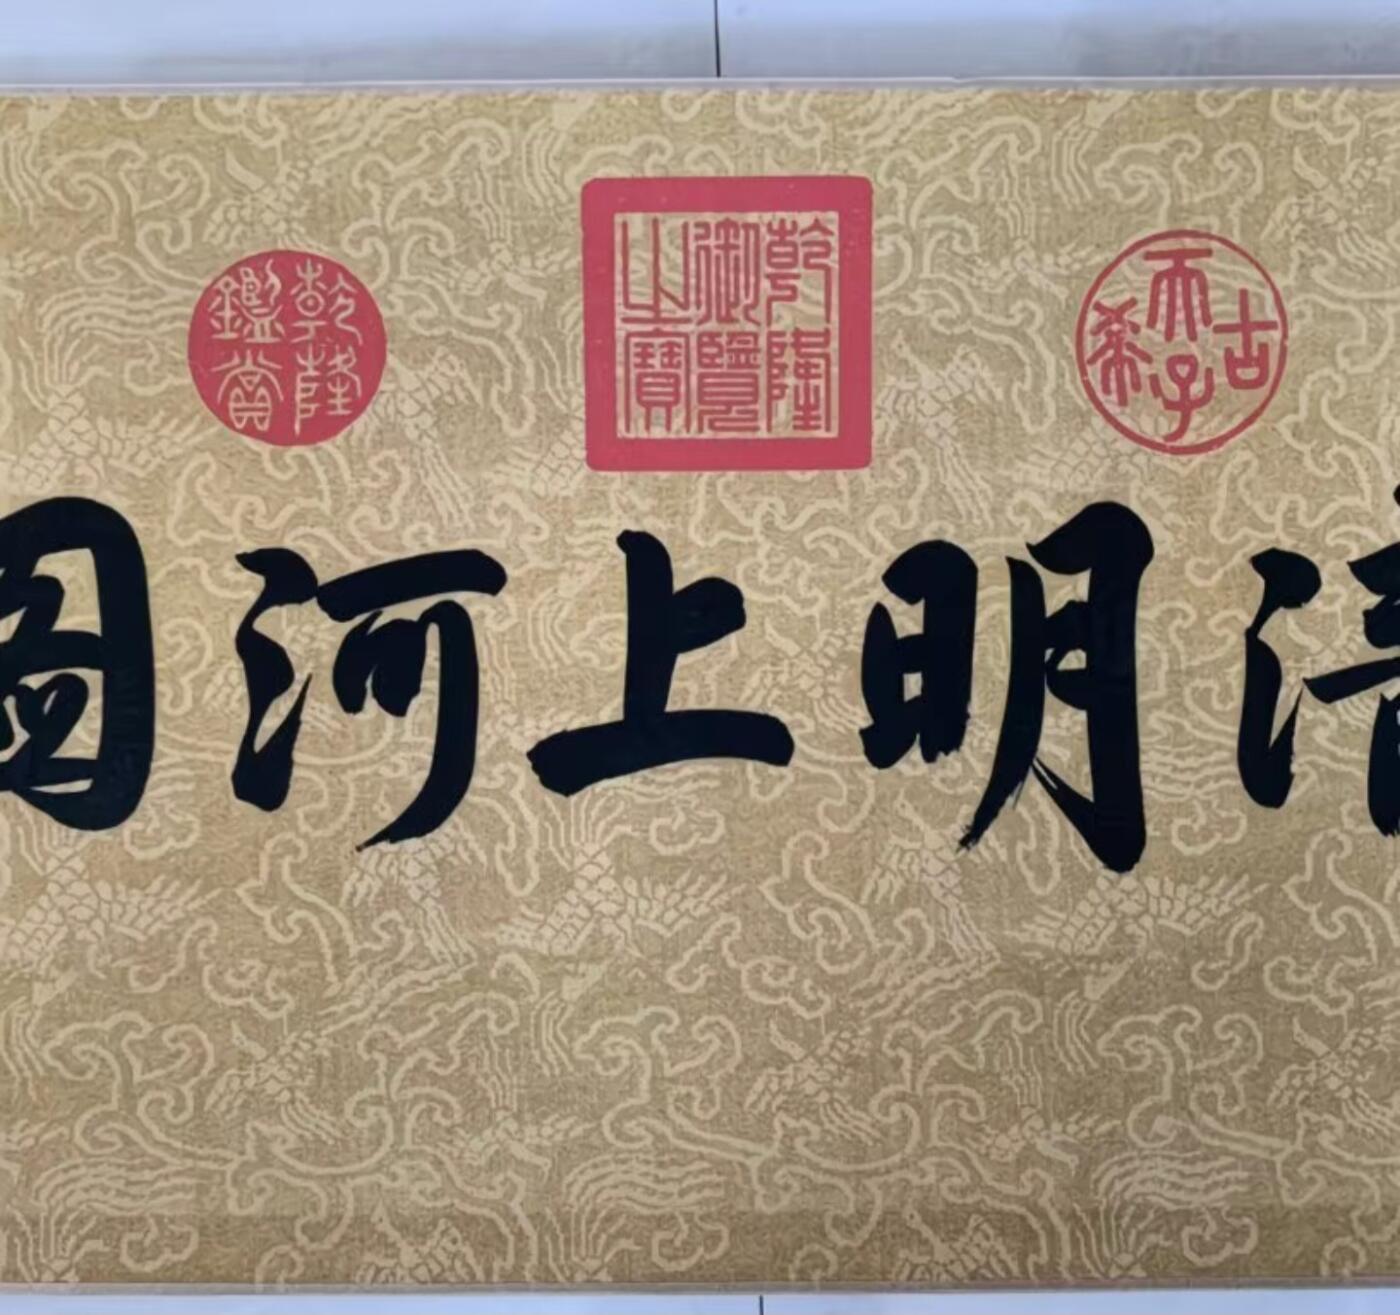 古希天子
乾隆御覽之寶
乾隆鑑賞
清明上河圖